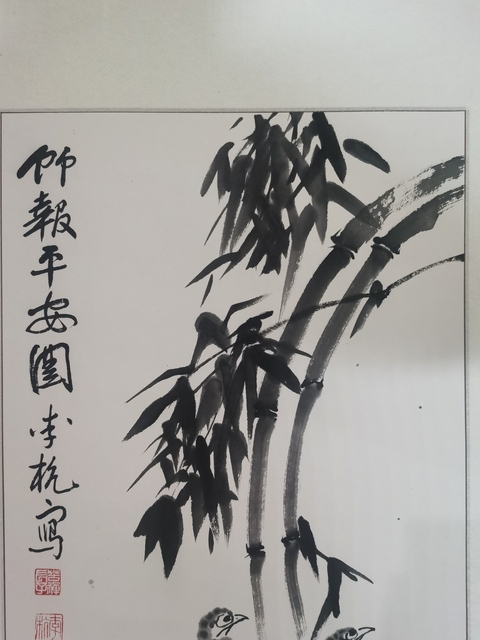 竹報平安圖李杭寫